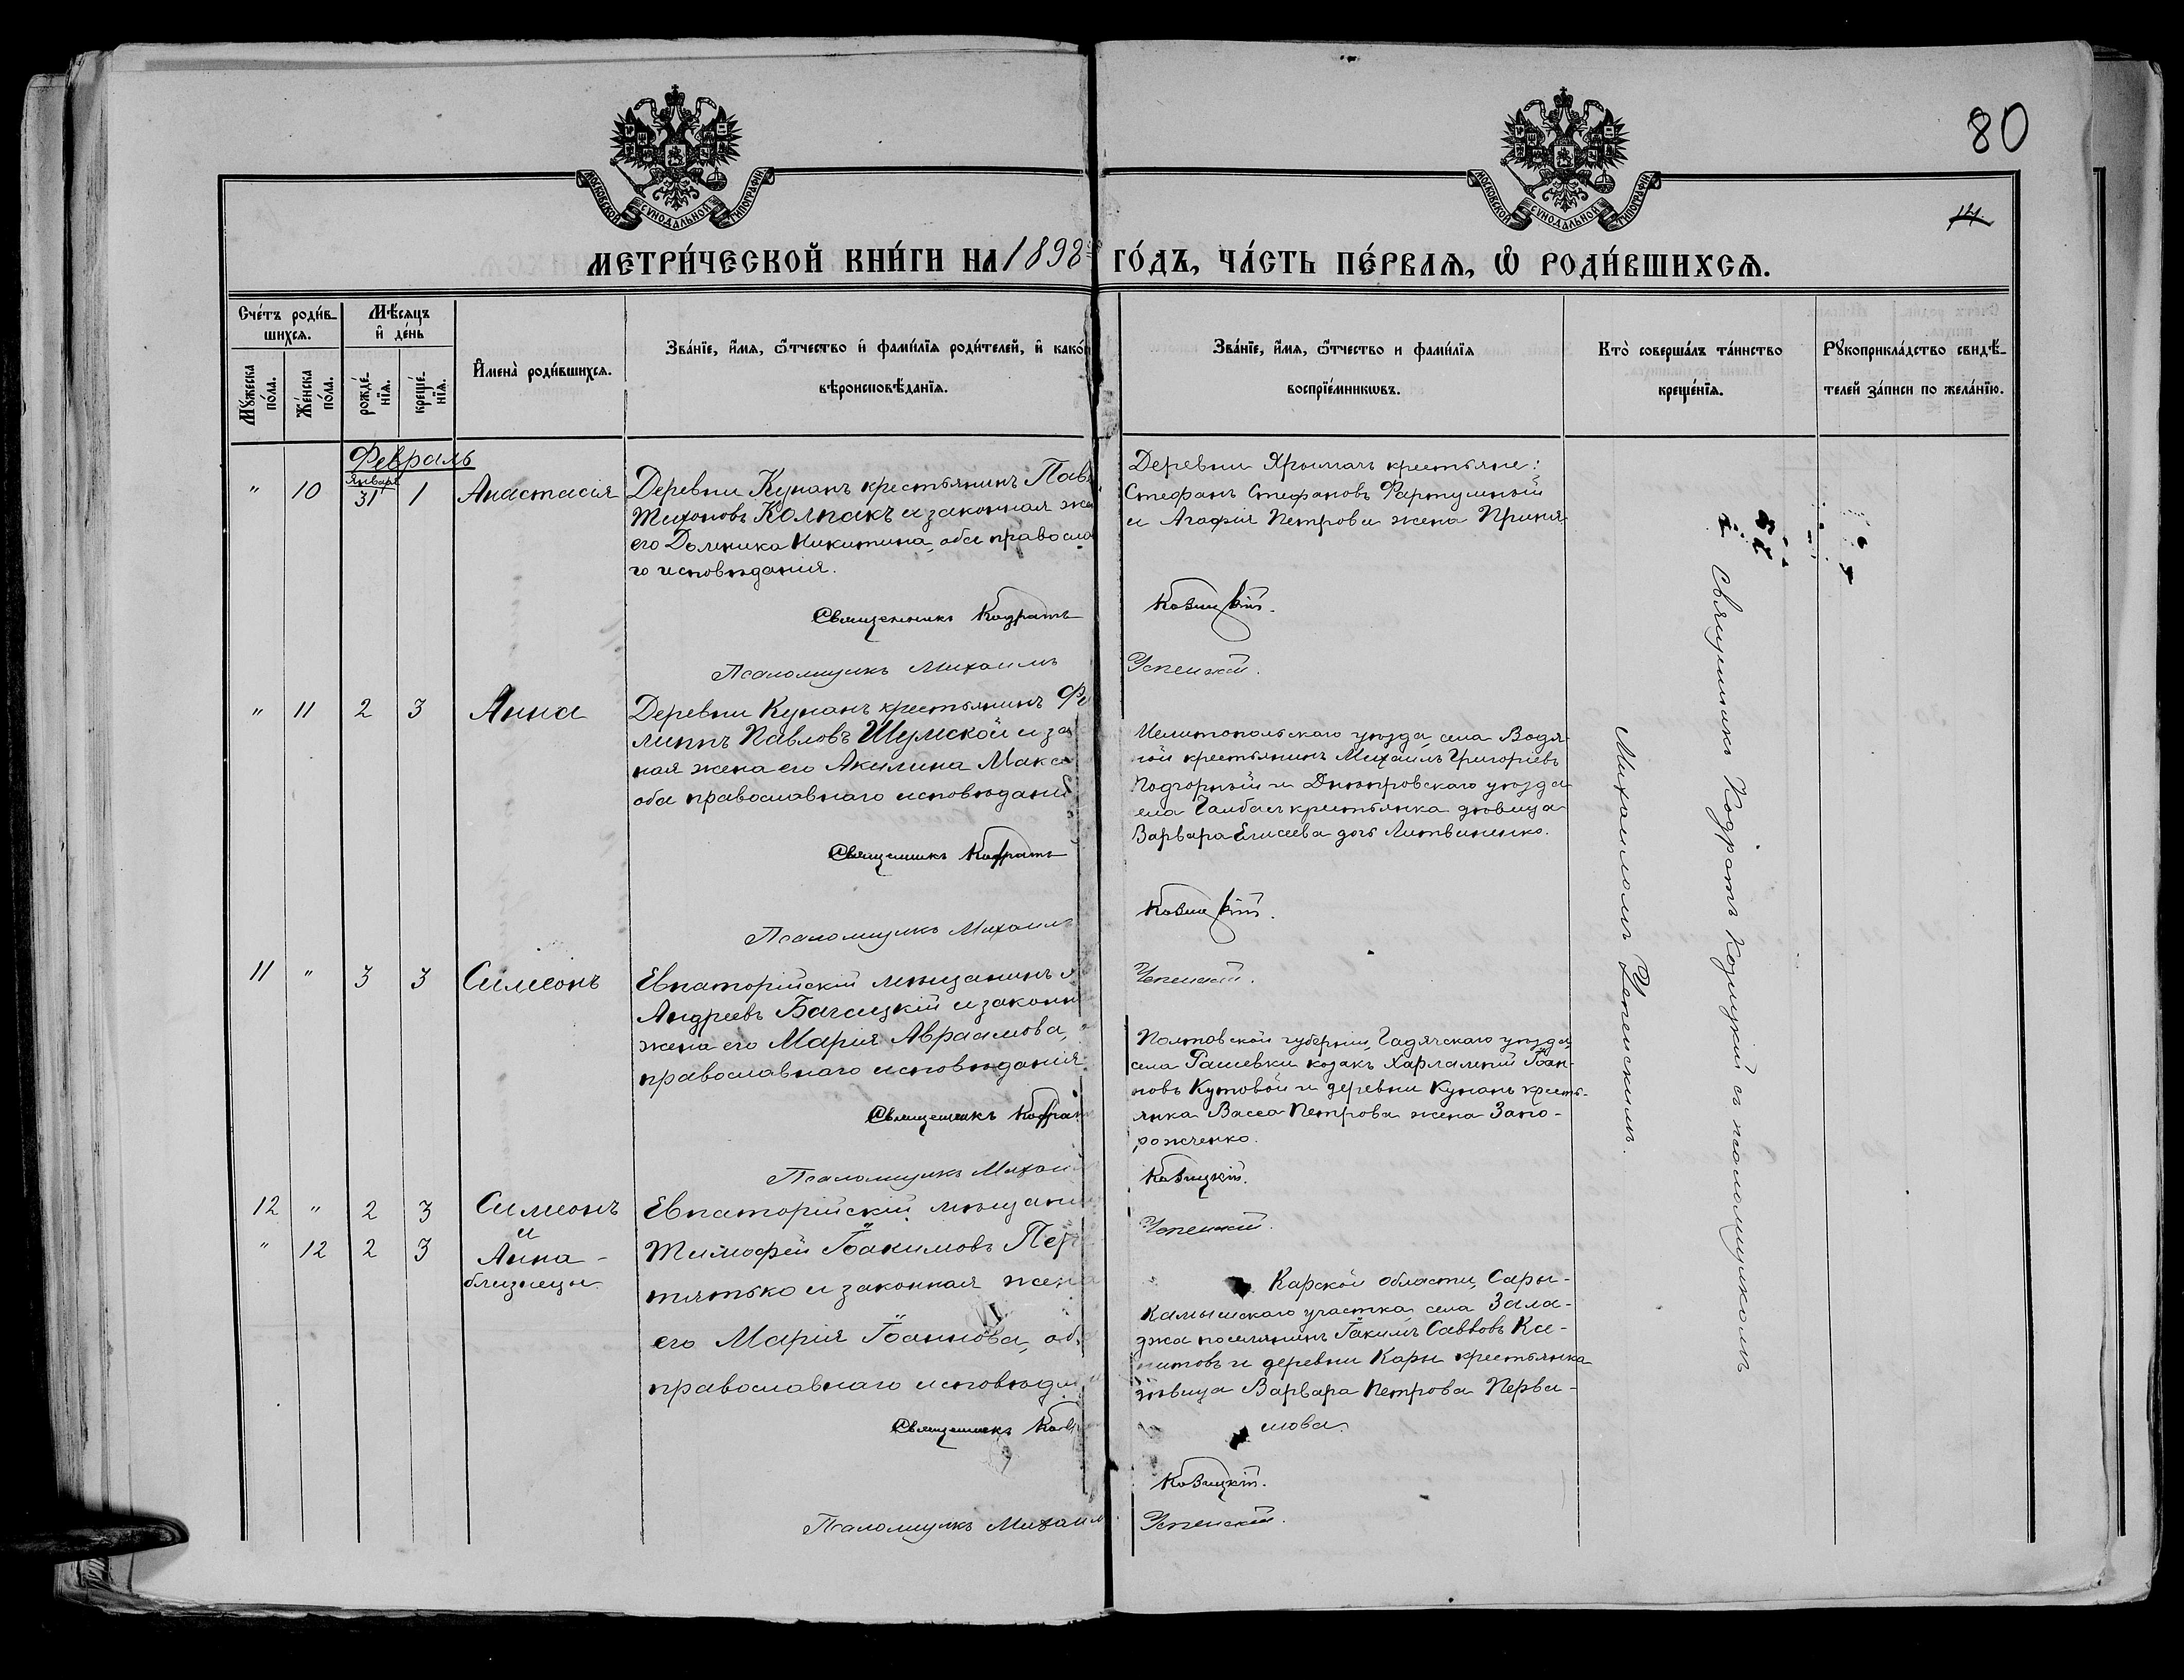 80
14.
МОСКОВСКОЙ СѴНОДАЛЬНОЙ ТИПОГРАФІИ
МОСКОВСКОЙ СѴНОДАЛЬНОЙ ТИПОГРАФІИ
МЕТРИ́ЧЕСКОЙ КНИ́ГИ НА 1898 ГО́ДЪ, ЧА́СТЬ ПЕ́РВАѦ, Ѽ РОДИ́ВШИХСѦ.
Сче́тъ роди́в-
шихсѧ.
Мꙋ́жеска по́ла.
Же́нска по́ла.
Мѣ́сѧцъ
и҆ де́нь
рожде́-
нїѧ.
креще́-
нїѧ.
И҆мена̀ роди́вшихсѧ.
Зва́нїе, и҆́мѧ, ѻ҆́тчество и҆ фами́лїѧ роди́телей, и҆ како́
вѣроисповѣ́данїѧ.
Зва́нїе, и҆́мѧ, ѻ҆́тчество и фами́лїѧ
воспрїе́мникѡвъ.
Кто̀ соверша́лъ та́инство
креще́нїѧ.
Рꙋкоприкла́дство свидѣ́-
телей за́писи по жела́нїю.
Февраль
Января
" 10 31 1 Анастасія
Деревни Кунанъ крестьянинъ Пав
Тихоновъ Колпакъ и законная же
его Домника Никитина, оба правосла
го исповѣданія.
Священникъ Кодратъ
Псаломщикъ Михаилъ
Деревни крестьяне:
Стефанъ Стефановъ
и Агафія Петрова жена
Козицкій.
Успенскій.
" 11 2 3 Анна
Деревни Кунанъ крестьянинъ Фи
липпъ Павловъ Шумской и за
ная жена его Акилина Макс
оба православнаго исповѣдані
Священникъ Кодратъ
Псаломщикъ Михаилъ
Мелитопольскаго уѣзда, села Водя-
ной крестьянинъ Михаилъ Григоріевъ
Подгорный и Днѣпровскаго уѣзда
села крестьянка дѣвица
Варвара Елисеева дочь Литвиненко.
Козицкій.
Успенскій.
11 " 3 3 Симеонъ
Евпаторійскій мѣщанинъ
Андреевъ Багацкій и законн
жена его Марія Авраамова,
православнаго исповѣданія
Священникъ Кодрат
Псаломщикъ Михаи
Полтавской губерніи, Гадячскаго уѣзда,
села Рашевки козакъ Харлампій Іоан-
новъ Кутовой и деревни Кунанъ кресть-
янка Васса Петрова жена Запо-
рожченко.
Козицкій.
Успенскій.
12 " 2 3 Симеонъ
и
" 12 2 3 Анна -
близнецы
Евпаторійскій мѣщани
Тимофей Іоакимовъ Пер
тятько и законная жена
его Марія Іоаннова, об
православнаго исповѣда
Священникъ Код
Псаломщикъ Михаил
Карской области, Сары-
камышскаго участка, села Зала-
джа поселянинъ Іакимъ Саввовъ
и деревни Кары крестьянка
дѣвица Варвара Петрова
мова.
Козицкій.
Успенскій.
Священникъ Кодратъ Козицкій съ псаломщикомъ
Михаиломъ Успенскимъ.